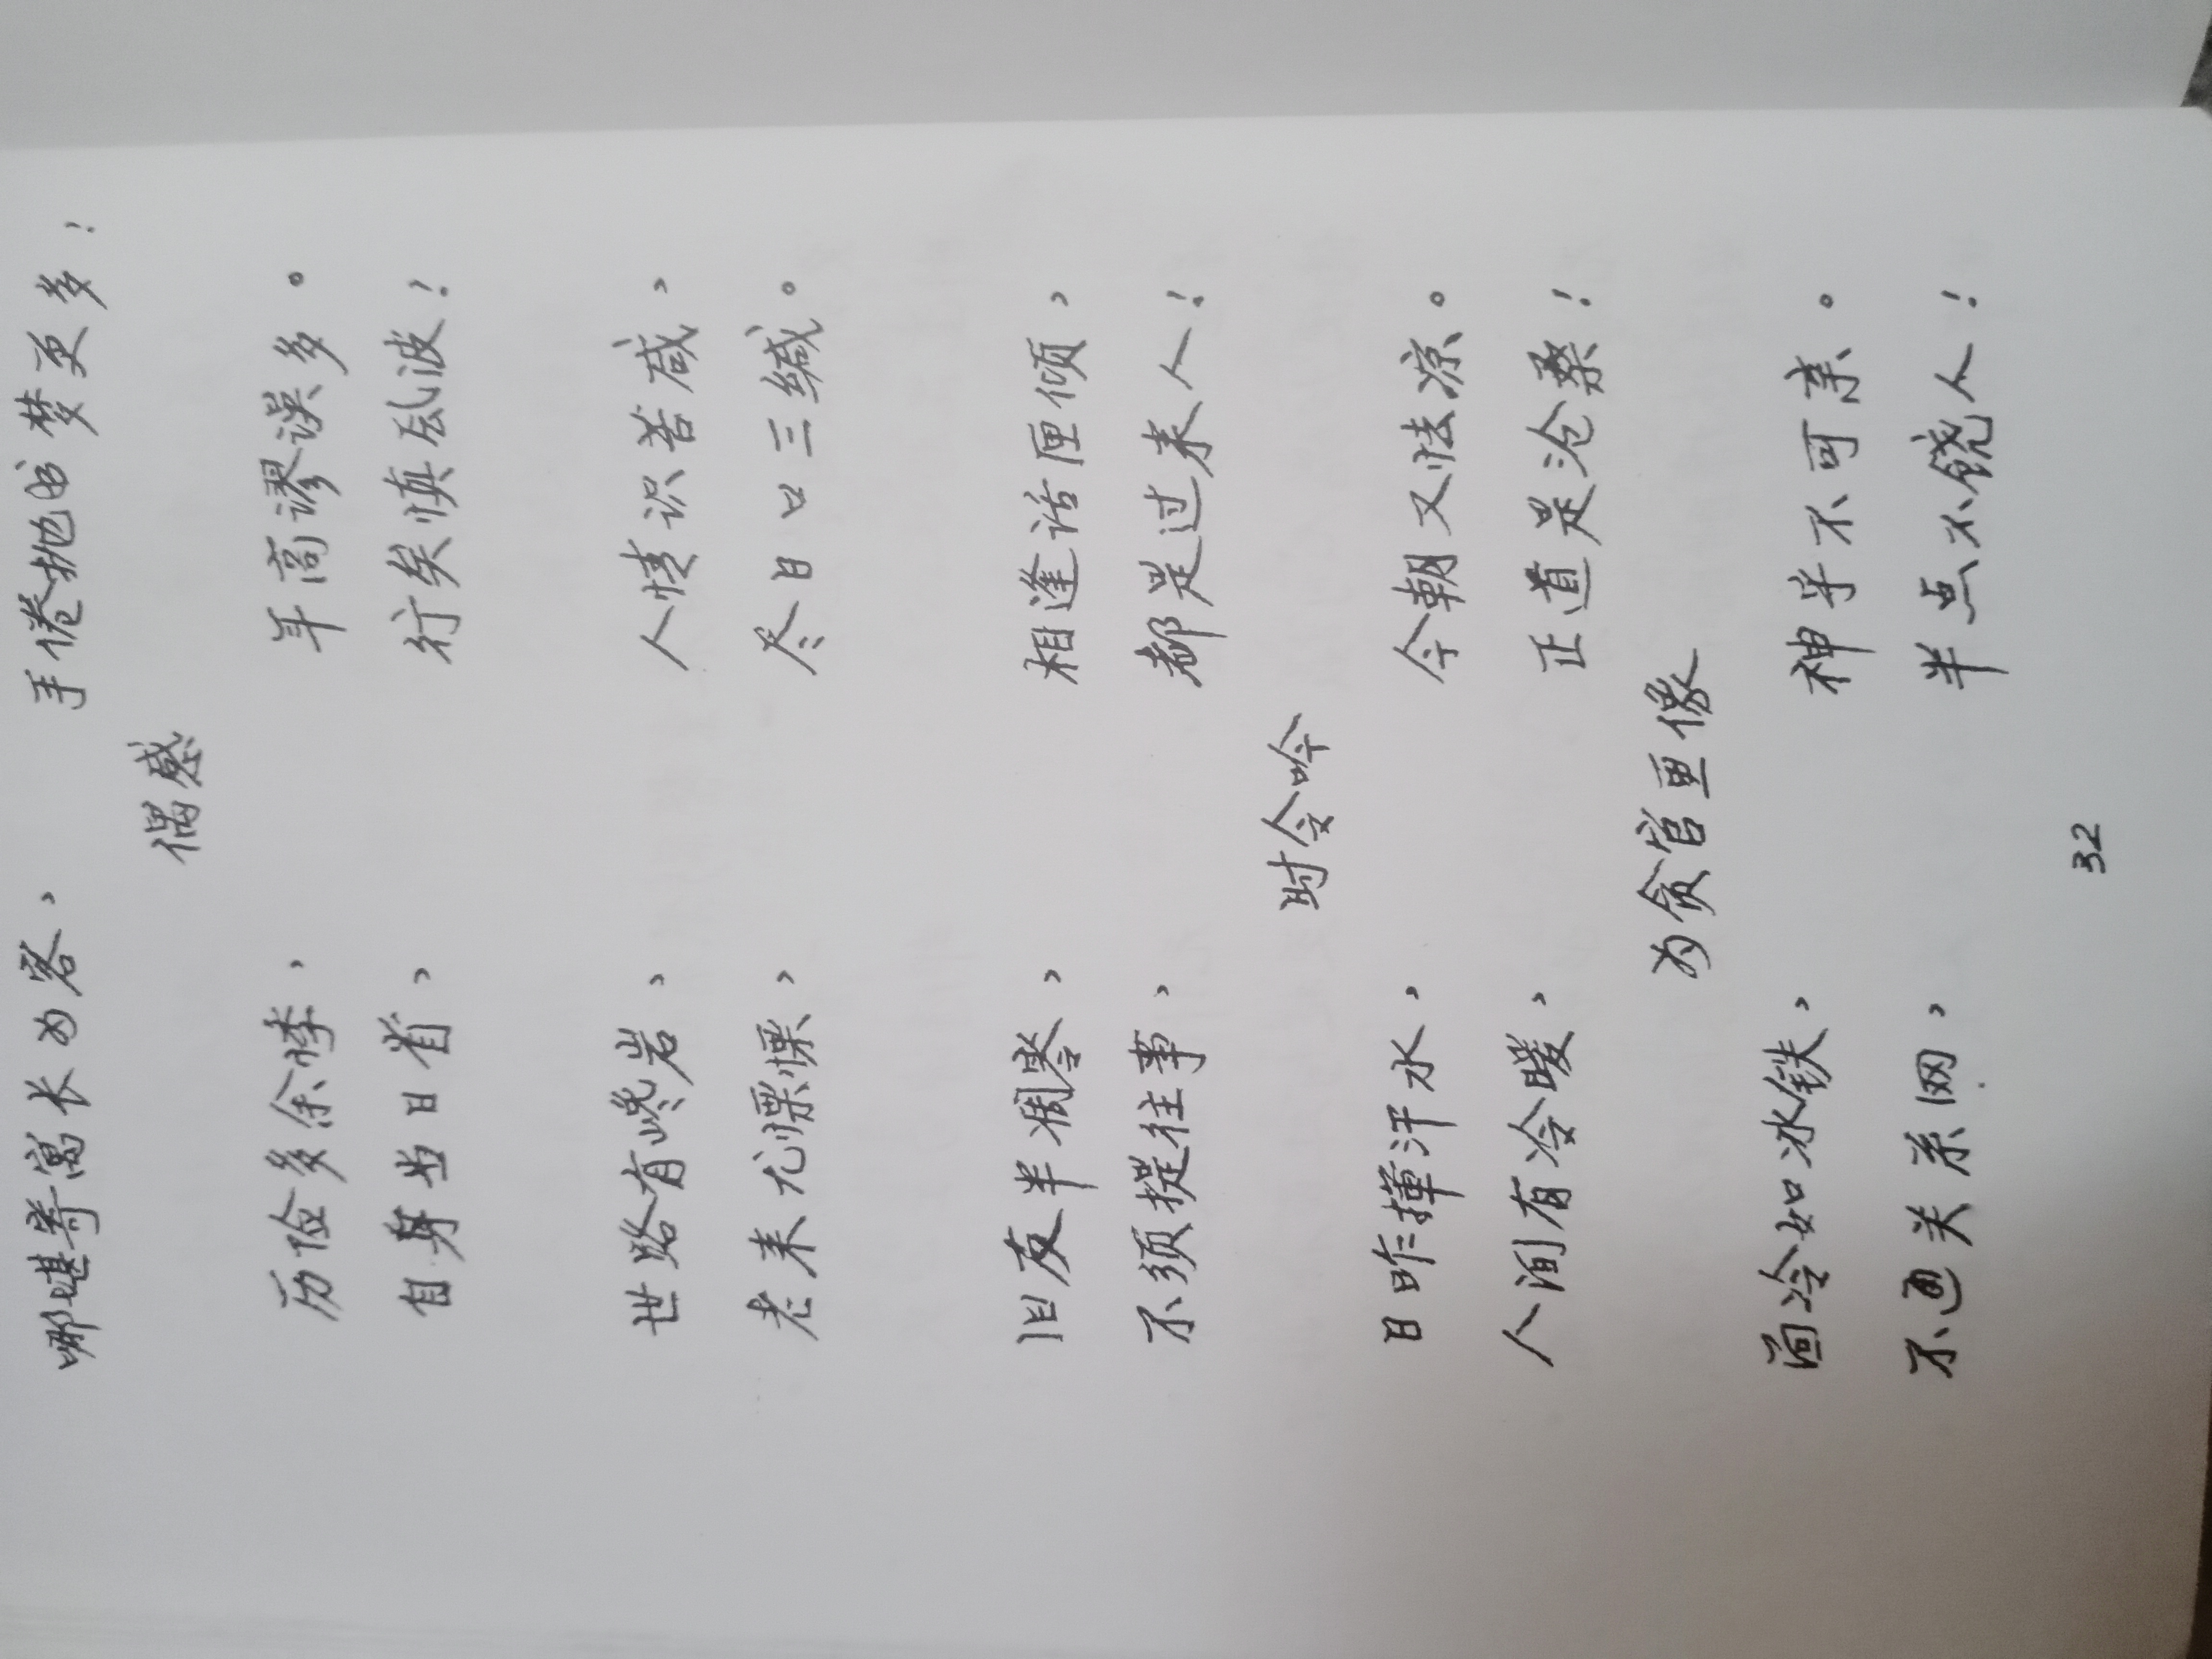 哪堪寄寓长为客，手倦抛书梦更多！
偶感
历险多余悸，年高谬误多。
自身当日省，行矣慎风波！
世路有巉岩，人情识苦咸，
老来尤慄慄，尽日口三缄。
旧友半凋零，相逢话匣倾，
不须提往事，都是过来人！
时令吟
日昨挥汗水，今朝又怯凉。
人间有冷暖，正道是沧桑！
为贪官画像
面冷如冰铁，神乎不可亲。
不通关系网，半点不饶人！
32